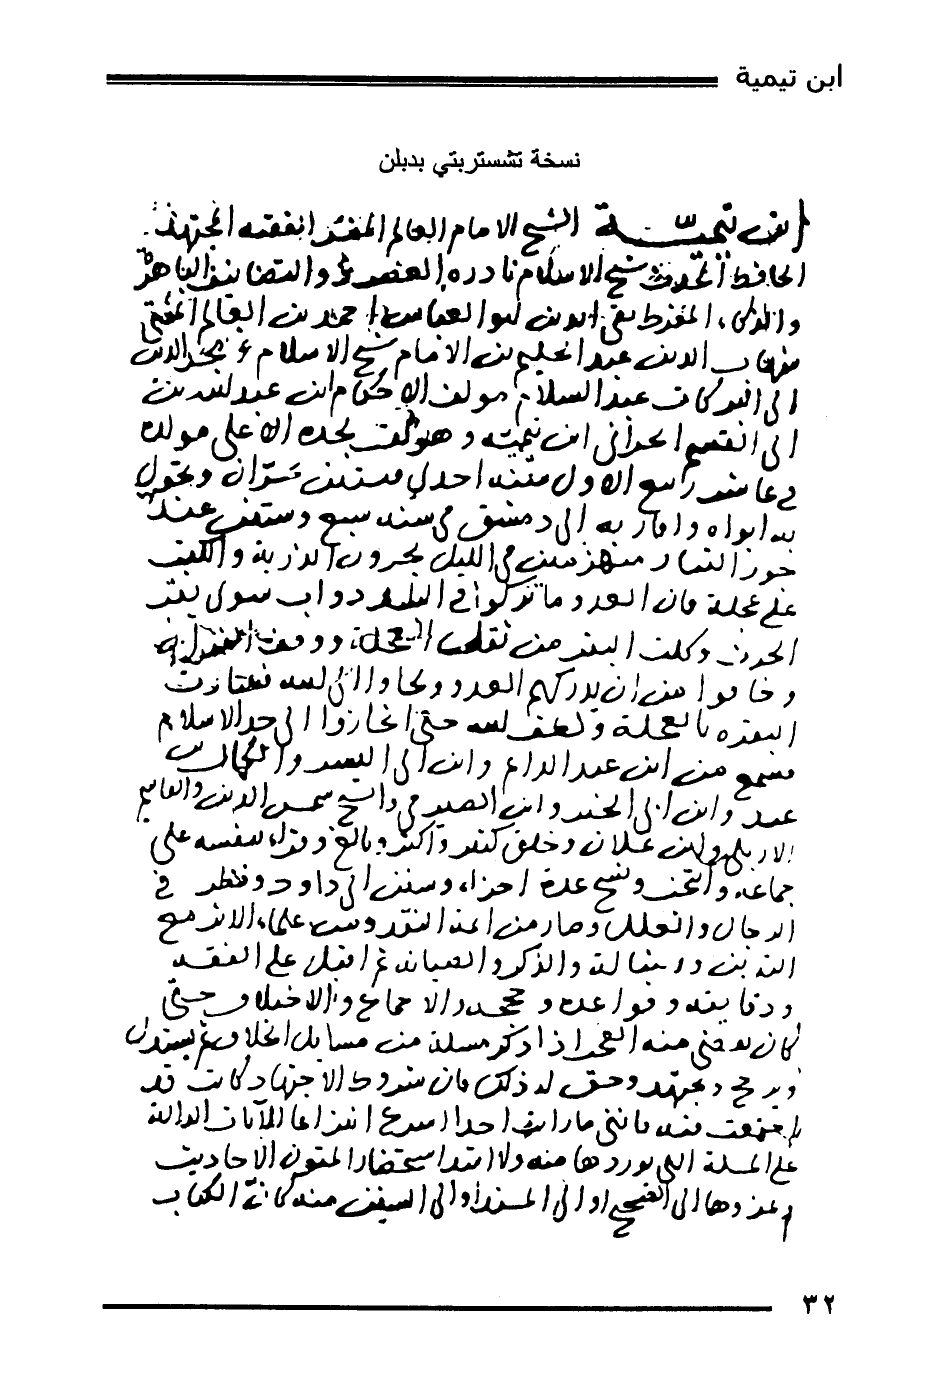 ابن تيمية
نسخة تشستربتي بدبلن
ابن تيميـــة الشيخ الامام العالم المفسر الفقيه المجتهد
الحافظ المحدث شيخ الاسلام نادرة العصر ذو التصانيف الباهرة
والذكاء المفرط تقي الدين ابو العباس احمد بن العالم المفتي
شهاب الدين عبد الحليم بن الامام شيخ الاسلام مجد الدين
ابي البركات عبد السلام مولف الاحكام ابن عبد الله بن
ابي القسم الحراني ابن تيمية وهو لقب لجده الاعلى مولده
في عاشر ربيع الاول سنه احدى وستين بحران وتحول
به ابواه واقاربه الى دمشق في سنه سبع وستين عند
جور التتار منهزمين في الليل يجرون الذرية والكتب
على عجلة فان العدو ما تركوا في البلد دواب سوى بقر
الحرث وكلت البقر من ثقل العجلة ووقف
وخافوا من ان يدركهم العدو ولجاوا الى الله فسارت
البقره بالعجلة ولطف الله حتى انحازوا الى حد الاسلام
فسمع من ابن عبد الدايم وابن ابي اليسر والكمال بن
عبد وابن ابي الخير وابن الصيرفي والشيخ شمس الدين والقاسم
الاربلي وابن علان وخلق كثير واكثر وبالغ وقرا بنفسه على
جماعه وانتخب ونسخ عدة اجزاء وسنن ابي داود ونظر في
الرجال والعلل وصار من ايمه النقد ومن علماء الاثر مع
التدين والذكر والصيانه ثم اقبل على الفقه
ودقايقه وقواعده وحججه والاجماع والاختلاف حتى
كان يقضى منه العجب اذا ذكر مسلة من مسايل الخلاف ثم يستدل
ويرجح ويجتهد وحق له ذلك فان شروط الاجتهاد كانت قد
اجتمعت فيه فانني ما رايت احدا اسرع انتزاعا للايات الدالة
على المسلة التي يوردها منه ولا اشد استحضارا لمتون الاحاديث
وعزوها الى الصحيح او الى المسند او الى السنن منه كان الكتاب
٣٢